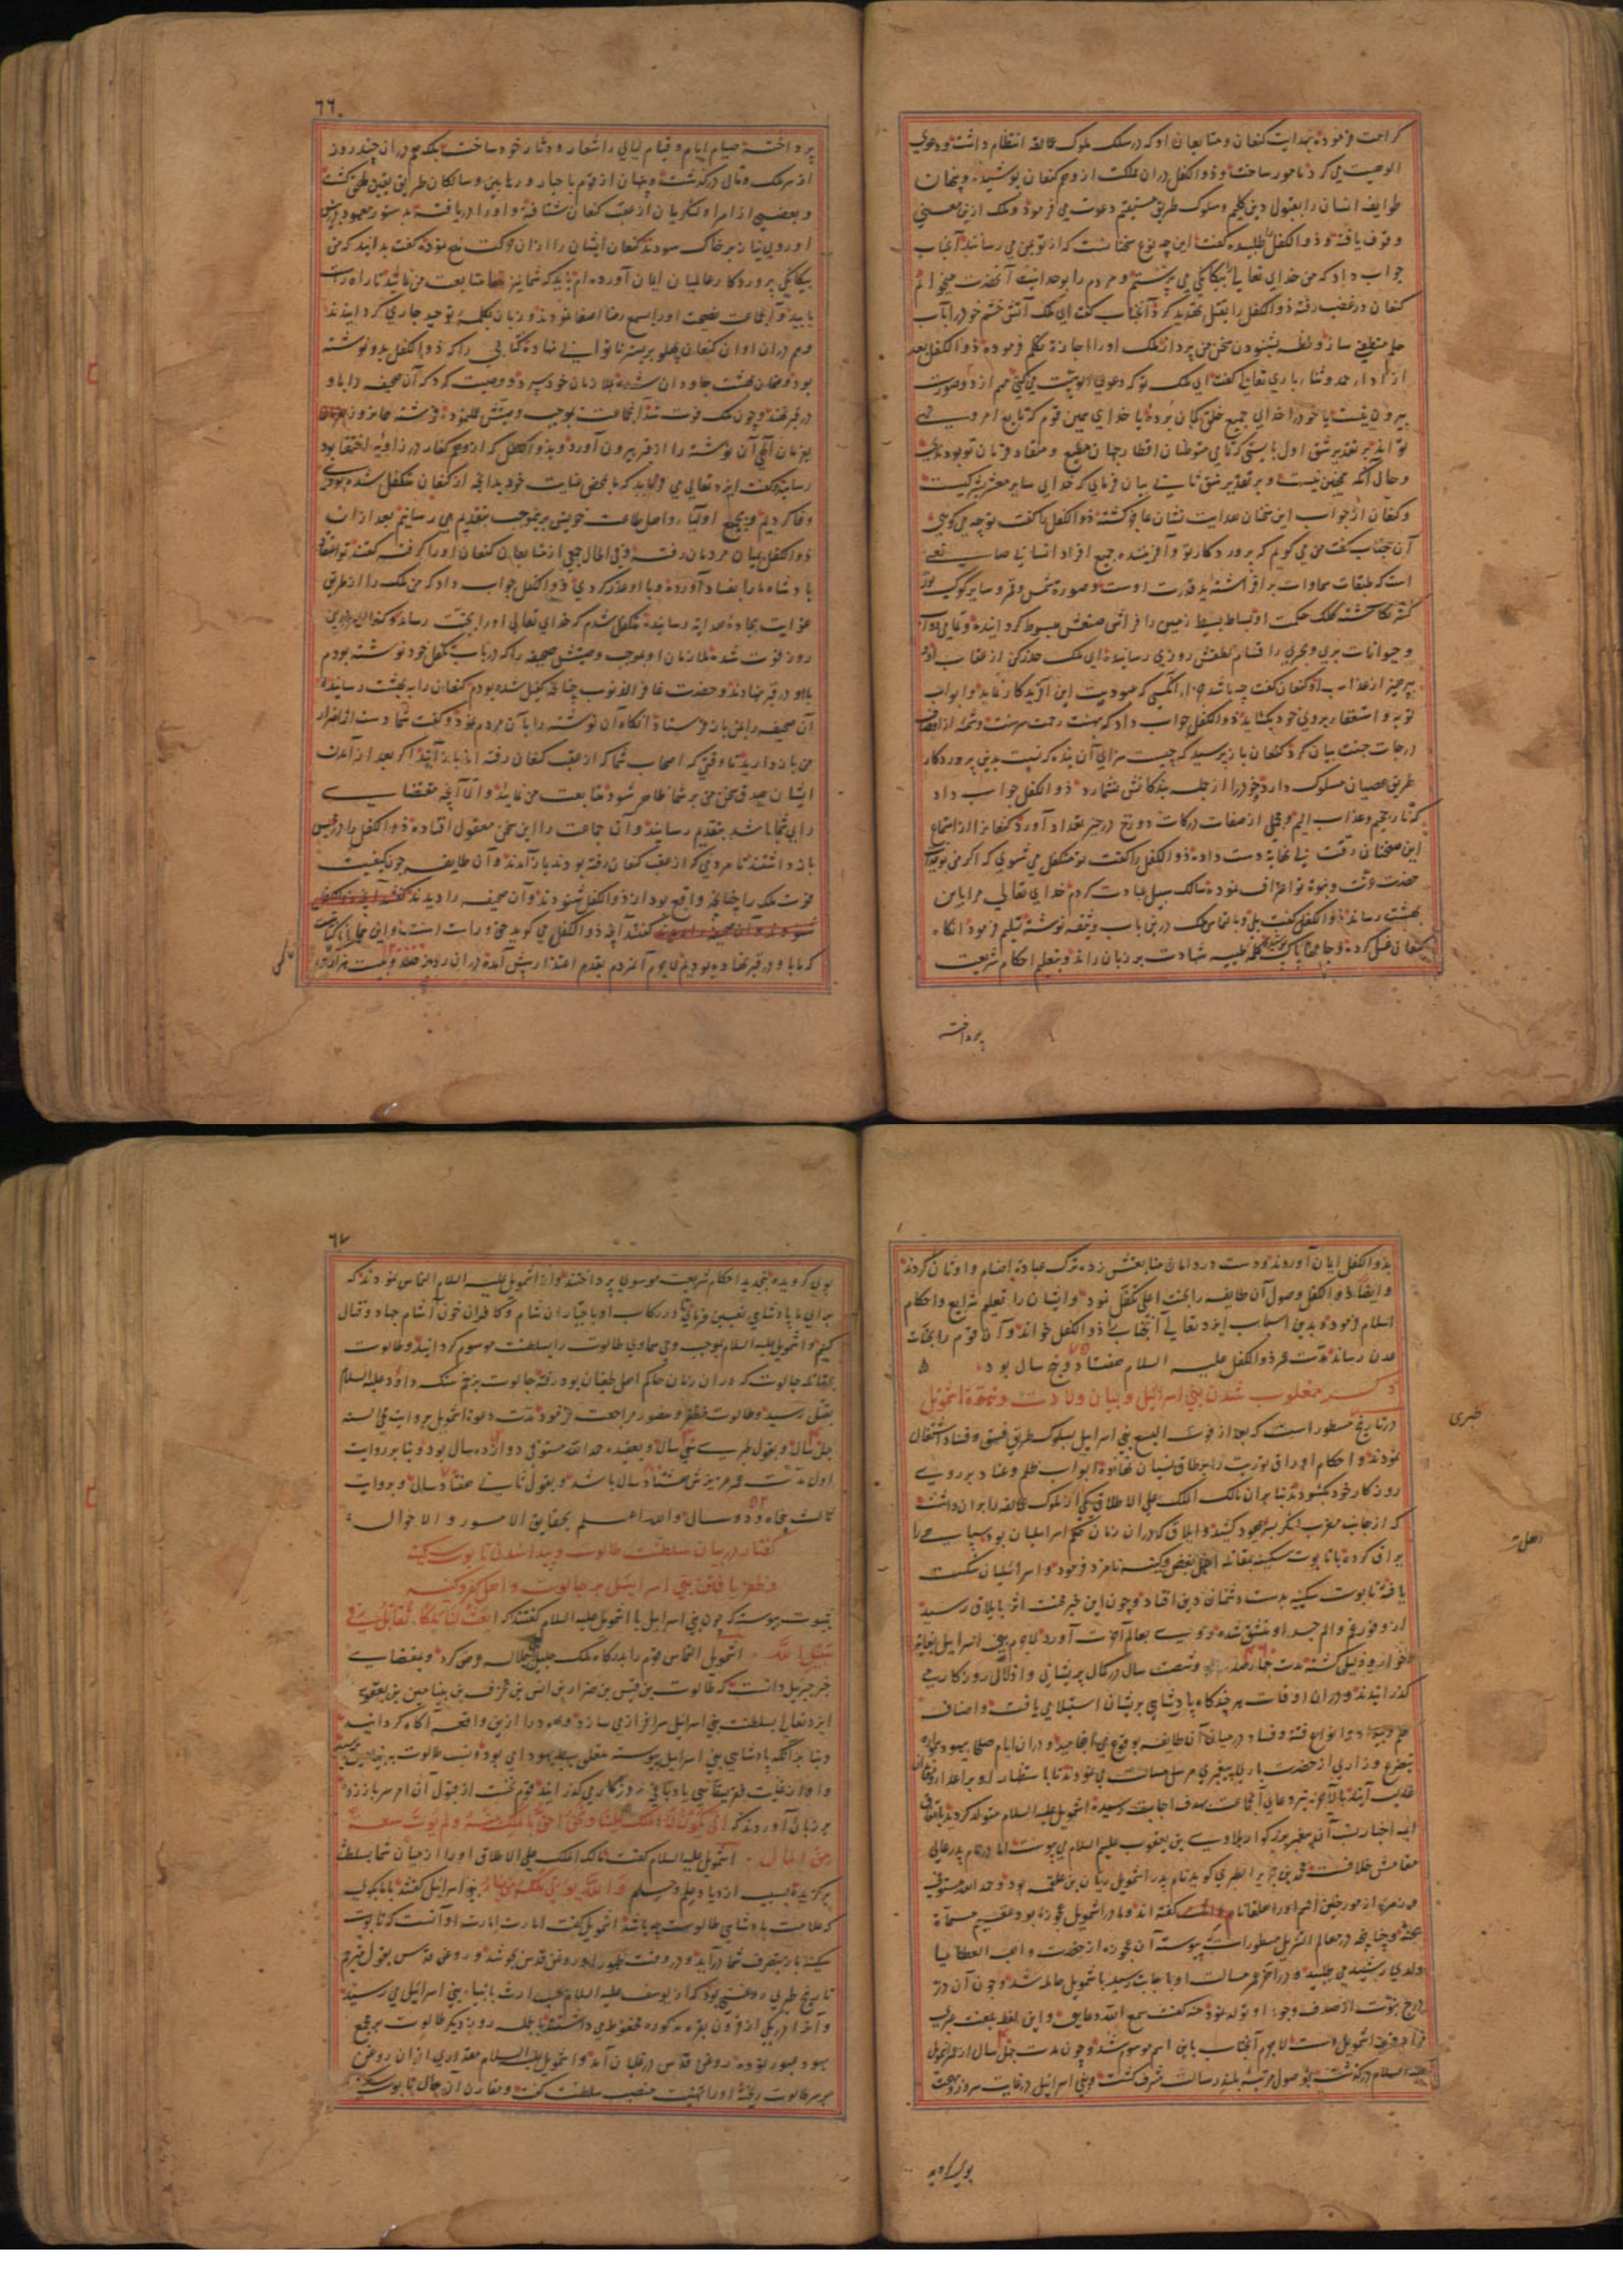 کرامت فرموده بهدایت کنعان و متابعان او که در سلک ملوک عمالقه انتظام داشت و دعوی
الوهیت می کرد مامور ساخت و ذوالکفل در ان مملکت از وهم کنعان پوشیده و پنهان
طوایف انسان را بقبول دین کلیم و سلوک طریق مستقیم دعوت می فرمود و ملک ازین معنی
وقوف یافته و ذوالکفل را طلبیده گفت این چه نوع سخنانست که از تو بمن می رسانند آنجناب
جواب داد که من خدای تعالی را بیگانگی می پرستم و مردم را بوحدانیت آنحضرت میخوانم
کنعان در غضب رفته ذوالکفل را بقتل تهدید کرد آنجناب گفت ای ملک آتش خشم خود را بآب
حلم منطفی ساز و لحظه بشنودن سخن من پرداز ملک او را اجازت تکلم فرموده ذوالکفل بعد
از ادای حمد و ثنای باری تعالی گفت ای ملک تو که دعوی الوهیت می کنی مهم از دو صورت
بیرون نیست یا خود را خدای جمیع خلق کمان برده یا خدای همین قوم که تابع امر و نهی
تو اند بر تقدیر شق اول بایستی که تمامی متوطنان اقطار جهان مطیع و منقاد فرمان تو بودندی
و حال آنکه همچنین نیست و بر تقدیر شق ثانی بیان فرمای که خدای سایر معشر بشر کیست
و کنعان از جواب این سخنان هدایت نشان عاجز کشته ذوالکفل را کفت تو چه می کویی
آن جناب گفت من می کویم که پروردکار تو و آفریننده جمیع افراد انسانی صانعی
است که طبقات سماوات برافراشته ید قدرت اوست و صوره شمس و قمر و سایر کواکب نور
کستر نکاشته کلک حکمت او بساط بسیط زمین را فراش صنعش مبسوط کردانیده و تمامی دواب
و حیوانات بری و بحری را قسام لطفش روزی رسانیده ای ملک حذر کن از عقاب او و
بپرهیز از عذاب او کنعان کفت چه باشد جزاء انکسی که عبودیت این آفریدکار نماید و ابواب
توبه و استغفار بروی خود بکشاید ذوالکفل جواب داد که بهشت رحمت سرشت و شمه از اوصاف
درجات جنت بیان کرد کنعان باز پرسید که چیست سزای آن بنده که نسبت بدین پروردکار
طریق عصیان مسلوک دارد و خود را از جمله بندکانش نشمارد ذوالکفل جواب داد
که نار جحیم و عذاب الیم و مجملی از صفات درکات دوزخ در حیز تعداد آورد کنعان را از استماع
این سخنان رقت بی نهایه دست داده ذوالکفل را کفت تو متکفل می شوی که اکر من بوحدانیت
حضرت عزت و نبوة تو اعتراف نموده سالک سبیل عبادت کردم خدای تعالی مرا باین
بهشت رساند ذوالکفل کفت بلی و بالتماس ملک درین باب وثیقه نوشته تسلیم فرمود انکاه
کنعان غسل کرده و جامهای پاک پوشیده کلمه طیبه شهادت بر زبان راند و بتعلیم احکام شریعت
پرداخته
٦٦
پرداخته صیام ایام و قیام لیالی را شعار و دثار خود ساخت بلکه هم در ان چند روز
از سر ملک و مال درگذشت و پنهان از قوم با احبار و ربابین و سالکان طریق یقین ملحق کشت
و بعضی از امرا و لشکریان از عقب کنعان شتافته و او را دریافته بدستور معهود در پیش
او روی نیاز بر خاک سودند کنعان ایشان را از ان حرکت منع نموده گفت بدانید که من
بیکانکی پروردکار عالمیان ایمان آورده ام باید که شما نیز متابعت من نمائید تا راه راست
یابید و آنجماعت نصیحت او را بسمع رضا اصغا نمودند و زبان بکلمه توحید جاری کردانیدند
و هم در ان اوان کنعان پهلو بر بستر ناتوانی نهاده کتابی را که ذوالکفل بدو نوشته
بود و ضمان بهشت جاودان شده بملازمان خود سپرد و وصیت کرد که آن صحیفه را با او
در قبر نهند و چون ملک فوت شد آنجماعت بموجب وصیتش عمل نموده فرشته همانروز
بفرمان آلهی آن نوشته را از قبر بیرون آورد و بذوالکفل که از وهم کفار در زاویه اختفا بود
رسانید و کفت ایزد تعالی می فرماید که ما بمحض عنایت خود بدانچه از کنعان متکفل شده بودی
وفا کردیم و بجمیع اولیا و اهل طاعت خویش برینموجب بتقدیم می رسانیم بعد از ان
ذوالکفل بمیان مردمان رفت و فی الحال جمعی از متابعان کنعان او را کرفته کفتند تو اغوای
پادشاه ما را بفساد آورده و با او غدر کردی ذوالکفل جواب داد که من ملک را از طریق
غوایت بجاده هدایه رسانیده متکفل شدم که خدای تعالی او را بجنت رساند و کنعان همین
روز فوت شده ملازمان او بموجب وصیتش صحیفه را که در باب تکفل خود نوشته بودم
با او در قبر نهادند و حضرت غافر الذنوب چنانچه کفیل شده بودم کنعان را به بهشت رسانیده
آن صحیفه را بمن باز فرستاد انکاه آن نوشته را بآن مردم نمود و کفت شما دست از اضرار
من باز دارید تا وقتی که اصحاب شما که از عقب کنعان رفته اند باز آیند اکر بعد از آمدن
ایشان صدق سخن من بر شما ظاهر شود متابعت من نمایند و الا آنچه مقتضای
رای شما باشد بتقدیم رسانید و آن جماعت را این سخن معقول افتاده ذوالکفل را در حبس
باز داشتند تا مردمی که از عقب کنعان رفته بودند باز آمدند و آن طایفه چون کیفیت
فوت ملک را چنانچه واقع بود از ذوالکفل شنودند و آن صحیفه را دیدند
کفتند آنچه ذوالکفل می کوید حق و راست است و این همان کتابتست
که ما با او در قبر نهاده بودیم لاجرم آنمردم بقدم اعتذار پیش آمده در ان روز صد و بیست هزار نفر
بذوالکفل ایمان آوردند و دست در دامان متابعتش زده ترک عبادة اصنام و اوثان کردند
و ایضا ذوالکفل وصول آن طایفه را بجنت اعلی تکفل نمود و ایشان را تعلیم شرایع و احکام
اسلام فرمود و بدین اسباب ایزد تعالی آنجناب را ذوالکفل خواند و آن قوم را بجنات
عدن رساند مدت عمر ذوالکفل علیه السلام هفتاد و پنج سال بود
٧٥
ذکر مغلوب شدن بنی اسرائیل و بیان ولادت و نبوة اشمویل
طبری
در تاریخ مسطور است که بعد از فوت الیسع بنی اسرائیل بسلوک طریق فسق و فساد اشتغال
نمودند و احکام اوراق توریت را بر طاق نسیان نهاده ابواب ظلم و عناد بر روی
روزکار خود بکشودند بنابر ان مالک الملک علی الاطلاق یکی از ملوک عمالقه را بران داشت
که از جانب مغرب لشکر بسر یهود کشید و ایلاق که در ان زمان حاکم اسرائیلیان بود سپاهی را
یراق کرده با تابوت سکینه بمقابله اهل بغض و کینه نامزد فرمود و اسرائیلیان شکست
یافته تابوت سکینه بدست دشمنان دین افتاد و چون این خبر محنت اثر بایلاق رسید
از وفور غم و الم جسد او منشق شده روی بعالم آخرت آورد لاجرم بنی اسرائیل بغایه
خوار و ذلیل کشته مدت چهارصد و شصت سال در کمال پریشانی و اذلال روزکار می
کذرانیدند و در ان اوقات هر چندکاه پادشاهی بریشان استیلا می یافت و اصناف
ظلم و بیداد و انواع فتنه و فساد در میان آن طایفه بوقوع می انجامید و در ان ایام صلحاء یهود همواره
بتضرع و زاری از حضرت باری پیغمبری مرسل مسالت می نمودند تا باستظهار او بر اعدا
غالب آیند بالآخره تیر دعای آنجماعت بهدف اجابت رسیده اشمویل علیه السلام متولد کردید
ایمه اخبار نسب آن پیغمبر بزرکوار بلاوی بن یعقوب علیهم السلام می پیوست اما در نام پدر عالی
مقامش خلافست محمد بن جریر الطبری کوید نام پدر اشمویل ریان بن علقمه بود و حمد الله مستوفی
کفته اند و مادر اشمویل عجوزه بود عقیم مسماة
بحنه و چنانچه در معالم التنزیل مسطور است پیوسته آن عجوزه از حضرت واهب العطایا
ولدی رشید می طلبید و در آخر عمر مسالت او باجابت رسید باشمویل حامله شد و چون آن در
درج نبوت از صدف وجود او تولد نمود حنه کفت سمع الله دعایی و این لفظ بلغت عبری
مرادف اشمویل است لاجرم آنجناب باین اسم موسوم شد و چون مدت چهل سال از عمر اشمویل
علیه السلام درکذشت بوصول مرتبه بلند رسالت مشرف کشت و بنی اسرائیل در غایت سرور و بهجت
بوی کرویده
٦٧
بوی کرویده بتجدید احکام شریعت موسوی پرداختند و از اشمویل علیه السلام التماس نمودند که
برای ما پادشاهی تعیین فرمای تا در رکاب او با جباران شام و کافران خون آشام جهاد و قتال
کنیم و اشمویل علیه السلام بموجب وحی سماوی طالوت را بسلطنت موسوم کردانید و طالوت
بمقاتله جالوت که در ان زمان حاکم اهل طغیان بود رفته جالوت بزخم سنک داود علیه السلام
بقتل رسید و طالوت مظفر و منصور مراجعت فرمود مدت دعوة اشمویل بروایت محیی السنه
چهل سال و بقول طبری سی سال و بعقیده حمد الله مستوفی دوازده سال بود و بنا بر روایت
اول مدت عمر عزیزش هشتاد سال باشد و بقول ثانی هفتاد سال و بروایت
ثالث پنجاه و دو سال والله اعلم بحقایق الامور و الاحوال
٥٢
کفتار در بیان سلطنت طالوت و پیدا شدن تابوت سکینه
و ظفر یافتن بنی اسرائیل بر جالوت و اهل کفر و کینه
بثبوت پیوسته که چون بنی اسرایل با اشمویل علیه السلام کفتند که ابعث لنا ملکا نقاتل فی
سبیل الله اشمویل التماس قوم را بدرکاه ملک جلیل جل جلاله عرض کرد و بمقتضای
خبر جبریل دانست که طالوت بن قیس بن ضرار بن انس بن یحرف بن بنیامین بن یعقوب
ایزد تعالی بسلطنت بنی اسرائیل سرافراز می سازد و یهود را ازین واقعه آکاه کردانید
و بنابر آنکه پادشاهی بنی اسرائیل پیوسته متعلق بسبط یهودا می بود و نسب طالوت به بنیامین می رسید
و او از غایت فقر بسقایی یا دباغی روزکار می کذرانید قوم نخست از قبول آن امر سر باز زده
بر زبان آوردند که انی یکون له الملک علینا و نحن احق بالملک منه و لم یوت سعة
من المال اشمویل علیه السلام کفت مالک الملک علی الاطلاق او را از میان شما بسلطنت
برکزیده بسبب ازدیاد علم و جسم والله یوتی ملکه من یشاء بنو اسرائیل کفتند با ما بکوی
که علامت پادشاهی طالوت چه باشد اشمویل کفت امارت امارت او آنست که تابوت
سکینه باز بتصرف شما درآید و در وقت ظهور او روغن قدس بجوشد و روغن قدس بقول مترجم
تاریخ طبری روغنی بود که از یوسف علیه السلام بمیراث بانبیاء بنی اسرائیل می رسید
و آنرا در یکی از قرون بقره مذکوره محفوظ می داشتند بالجمله روز دیکر طالوت بر مجمع
یهود عبور نموده روغن قدس در غلیان آمد و اشمویل علیه السلام مقداری از ان روغن
بر سر طالوت ریخته او را تهنیت منصب سلطنت کفت و مقارن آن حال تابوت سکینه